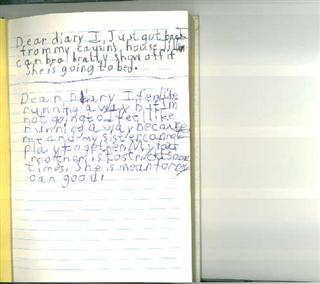 Dear diary I, Just got back
from my caysin's house
can be a bratty show off
She is going to bed.
Dear Diary I feel like
running a way but I'm
not going to. I feel like
running a way because
me and my sister cannot
play together. My
mother is too strict some
times. She is mean for
own good!